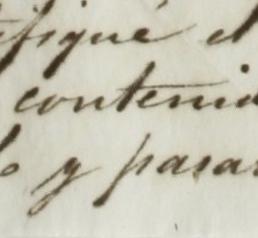 tifiqué el
contenid
lo y pasar